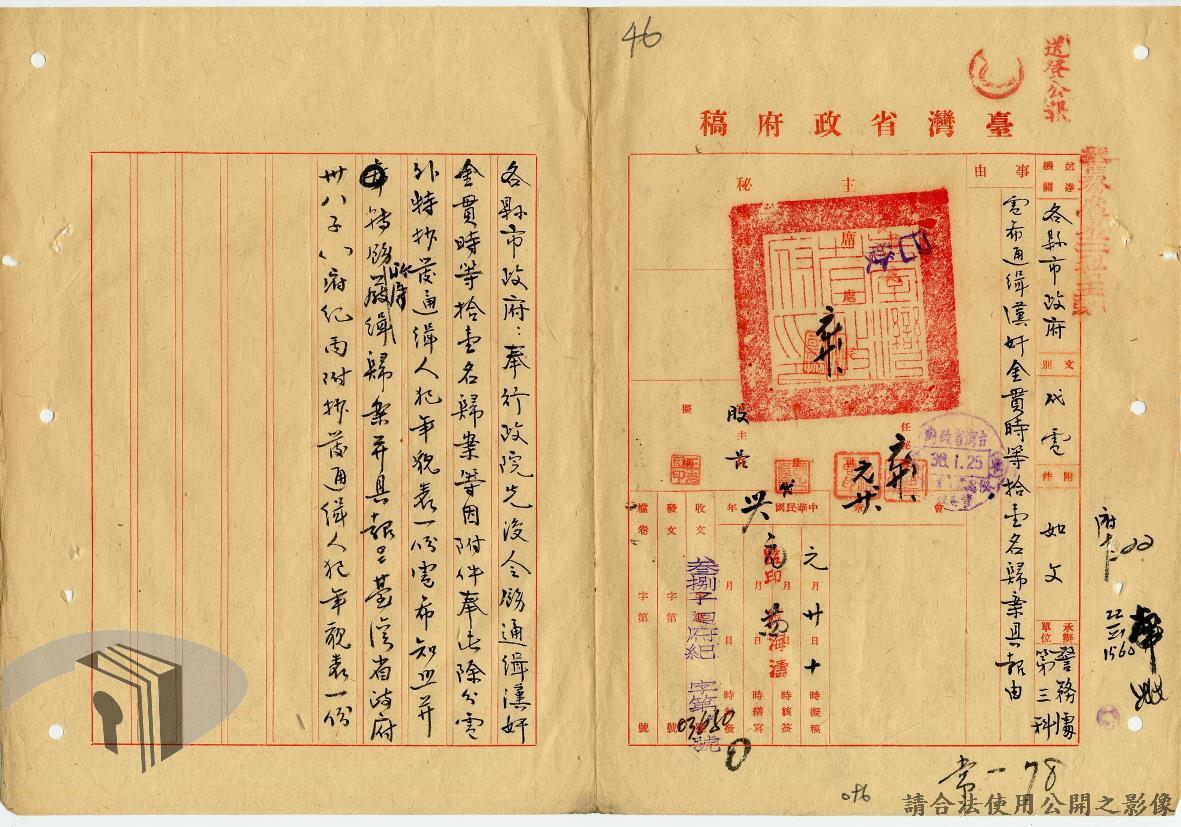 46
送登公報
臺灣省政府稿
送達機關
各縣市政府
文別
代電
附件
如文
承辦單位
警務處第三科
事由
電希通緝漢奸金貫時等拾壹名歸案具報由
主席
秘書處
台灣省政府
38.1.25
股主
擬
會
中華民國
年
元月廿日十時擬稿
月 日 時核簽
月 日 時繕寫
月 日 時
收文
發文
檔卷
字第
號
叁捌子 府紀 字第 號
03650
22
1560
常一 78
各縣市政府：奉行政院先後令飭通緝漢奸
金貫時等拾壹名歸案等因附件奉此除分電
外特抄發通緝人犯年貌表一份電希知照并
轉飭所屬嚴緝歸案并具報為要臺灣省政府
卅八子（）府紀丙附抄發通緝人犯年貌表一份
046
請合法使用公開之影像